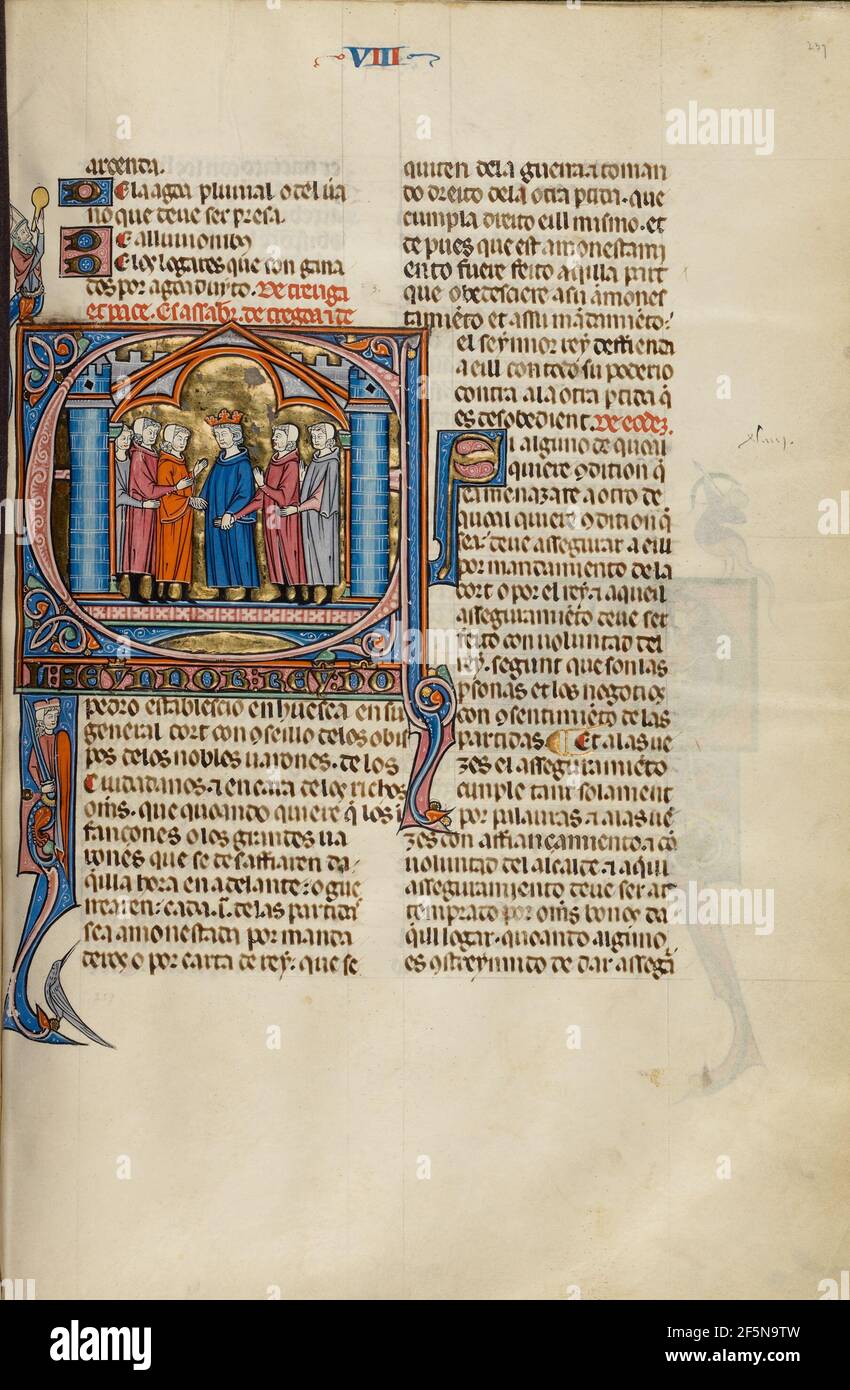 VIII
237
ardenda.
De la agoa pluuial o del ua
no que deue ser presa.
De alluuionibus
De los logares que son gana
dos por agoaduito. De treuga
et pace. Es assaber de tregoa i de
L: SEYNNOR: REY: DO
pedro establescio en huesca en su
general cort con conseillo delos obis
pos delos nobles uarones. de los
Ciudadanos. a encara delos richos
oms. que quoando quiere q̃ los i
fançones o los grandes ua
rones que se desaffiaren da
q̃lla hora en adelante: o gue
rrearen: cada .i. de las partidas
sea amonestada por manda
deros o por carta de rey. que se
quiten dela guerra. a toman
do dreito dela otra ptida. que
cumpla dreito eill mismo. et
depues que est amonestami
ento fuere feito aquilla part
que obedesciere a su amones
tamiẽto et a su mãdamiẽto:
el seynnor rey deffienda
a eill con todo su poderio
contra a la otra ptida q̃
es desobedient. De eodez.
Si alguno de quoal
quiere 9dition q̃
sea menazare a otro de
quoal quiere 9dition q̃
sea: deue assegurar a eill
por mandamiento de la
cort o por el rey. a aqueil
asseguramiẽto deue ser
feito con uoluntad del
rey. segunt que son las
psonas et los negocios
con 9sentimiẽto de las
partidas ¶ Et a las ue
zes el asseguramiẽto
cumple tant solament
por palauras. a a las ue
zes con affiançamiento. a cõ
uoluntad del alcalde. a aquil
asseguramiento deue ser at
temprado por oms bonos da
q̃l logar. quoanto alguno
es 9streynnido de dar assegũ
alamy
alamy
Image ID: 2F5N9TW
www.alamy.com